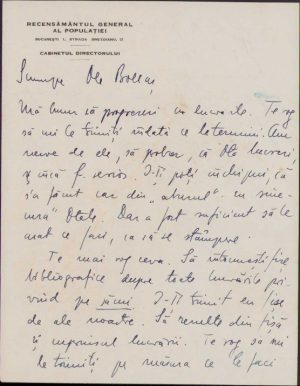 RECENSĂMÂNTUL GENERAL
AL POPULAȚIEI
BUCUREȘTI I, STRADA BREZOIANU,
CABINETUL DIRECTORULUI
Scumpe Dle Boltaș
Mă bucur că progresezi cu lucrările. Te rog
să mi le trimiți îndată ce le termini. Am
nevoie de ele, să probez, că Dta lucrezi,
și încă f. serios. Iți poți închipui, că
s'a făcut caz din „abuzul" cu
Dtale. Dar a fost suficient să le
arăt ce faci, ca să se stâmpere.
Te mai rog ceva. Să întocmești fișe
bibliografice despre toate lucrările pri-
vind pe . I-Ți trimit eu fișe
de ale noastre. Să rezulte din fișă
și cuprinsul lucrării. Te rog să mi
le trimiți pe măsura ce le faci